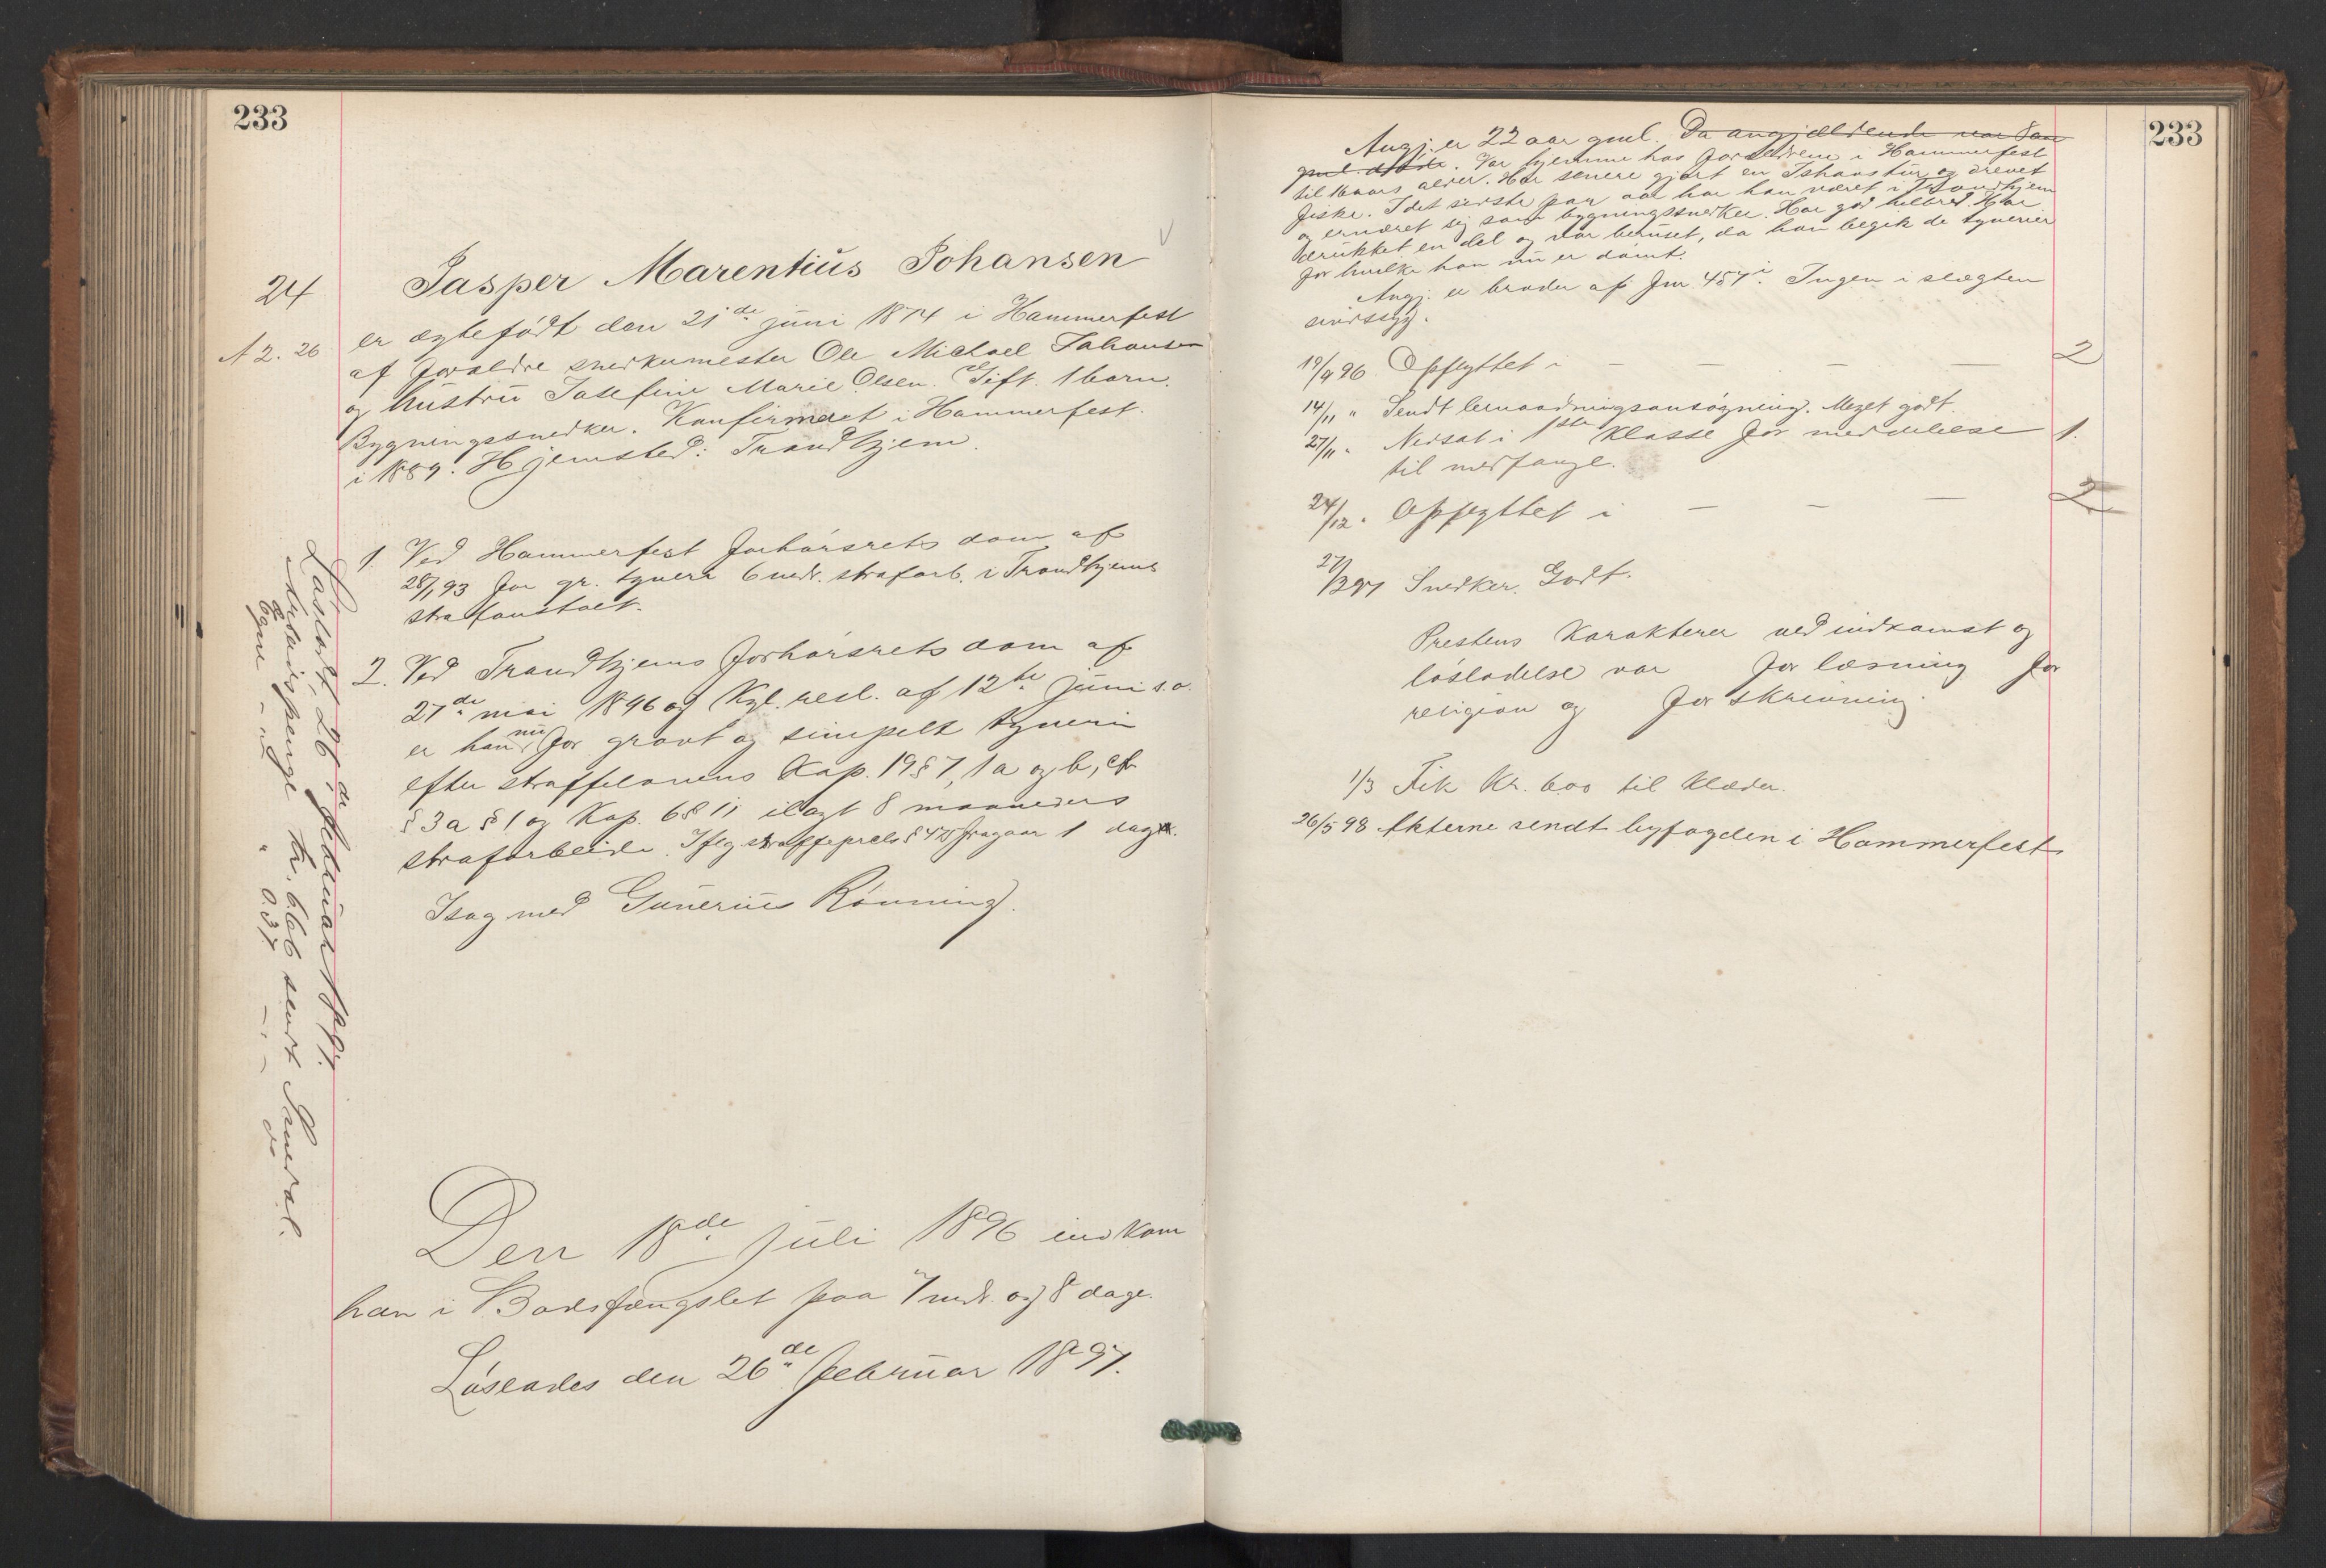 233
24
A 2. 26
Jasper Marentius Johansen
er ægtefødt den 21de juni 1874 i Hammerfest
af forældre snedkermester Ole Michael Johansen
og hustru Josefine Marie Olsen. Gift. 1 barn.
Bygningssnedker. Konfirmeret i Hammerfest
i 1889. Hjemsted: Trondhjem.
1. Ved Hammerfest forhørsrets dom af
28/1 93 for gr. tyveri 6 mdr. strafarb. i Trondhjems
strafanstalt.
2. Ved Trondhjems forhørsrets dom af
27de mai 1896 og Kgl. resl. af 12te juni s.a.
er han nu for grovt og simpelt tyveri
efter straffelovens Kap. 19 § 7, 1 a og b, cfr
§ 3 a § 1 og Kap. 6 § 11 ilagt 8 maaneders
strafarbeide. Iflg. straffeprcls § 475 fragaar 1 dag.
Isag med Gunerius Rønning.
Den 18de juli 1896 indkom
han i Bodsfængslet paa 7 mdr. og 8 dage.
Løslades den 26de februar 1897.
Løslodt, 26de februar 1897.
Arbeidspenge kr. 6.66 sendt Smedal.
Egne do - " - " 0.37 - " - do
233
Angj. er 22 aar gml. Da angjældende var 8 aar
gml. døde. Var hjemme hos forældrene i Hammerfest
til 16 aars alder. Har senere gjort en Ishavstur og drevet
fiske. I det sidste par aar har han været i Trondhjem
og ernæret sig som bygningssnedker. Har god helbred. Har
drukket en del og var beruset, da han begik de tyverier
for hvilke han nu er dømt.
Angj. er broder af fm. 457. Ingen i slægten
sindssyg.
19/9 96 Opflyttet i — — — 2
14/11 " Sendt benaadningsansøgning. Meget godt.
27/11 " Nedsat i 1ste Klasse for meddelelse 1.
til medfange.
24/12 " Opflyttet i — — — 2
27/2 97 Snedker. Godt.
Prestens Karakterer ved indkomst og
løsladelse var for læsning for
religion og for skrivning.
1/3 Fik Kr. 6.00 til klæder.
26/5 98 Akterne sendt byfogden i Hammerfest